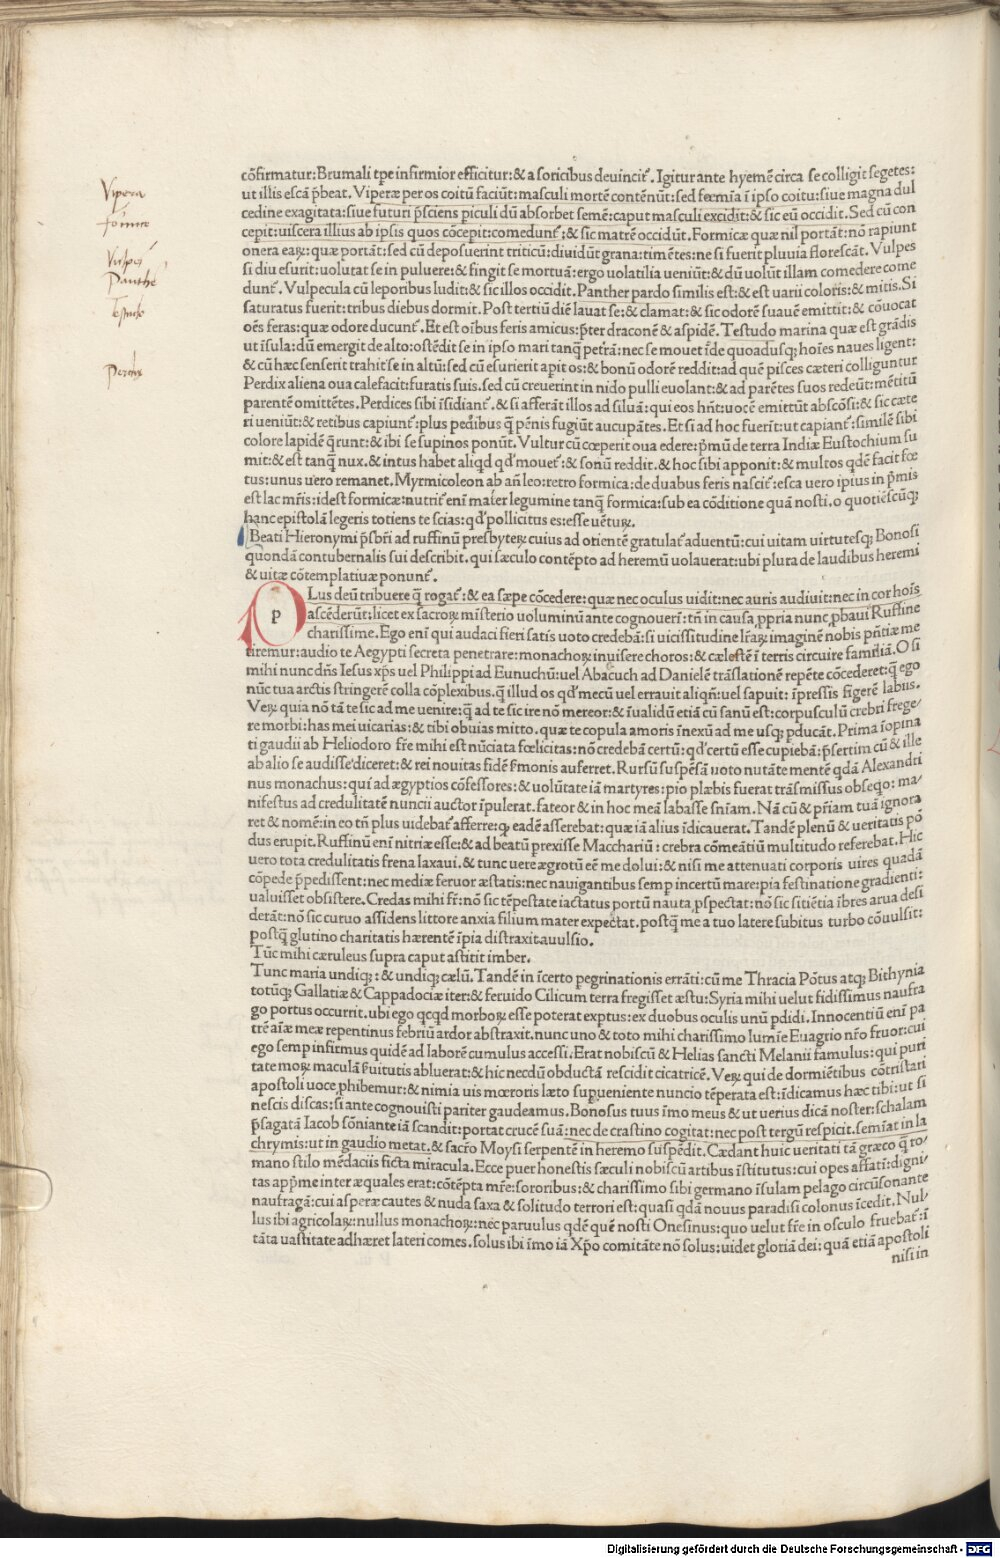 Vipera
formice
Vulpes
Panther
Testudo
Perdix
cōfirmatur: Brumali tp̄e infirmior efficitur: & a soricibus deuincit᷑. Igitur ante hyemē circa se colligit segetes:
ut illis escā p̄beat. Viperæ per os coitū faciūt: masculi mortē contēnūt: sed fœmīa ī ipso coitu: siue magna dul
cedine exagitata: siue futuri p̄sciens piculi dū absorbet semē: caput masculi excidit: & sic eū occidit. Sed cū con
cepit: uiscera illius ab ipsis quos cōcepit: comedunt᷑: & sic matrē occidūt. Formicæ quæ nil portāt: nō rapiunt
onera eaꝝ: quæ portāt: sed cū deposuerint triticū: diuidūt grana: timētes: ne si fuerit pluuia florescāt. Vulpes
si diu esurit: uolutat se in puluere: & fingit se mortuā: ergo uolatilia ueniūt: & dū uolūt illam comedere come
dunt᷑. Vulpecula cū leporibus ludit: & sic illos occidit. Panther pardo similis est: & est uarii coloris: & mitis. Si
saturatus fuerit: tribus diebus dormit. Post tertiū diē lauat se: & clamat: & sic odorē suauē emittit: & cōuocat
oēs feras: quæ odore ducunt᷑. Et est oībus feris amicus: p̄ter draconē & aspidē. Testudo marina quæ est grādis
ut īsula: dū emergit de alto: ostēdit se in ipso mari tanq̄ petrā: nec se mouet īde quoadusq; hoīes naues ligent:
& cū hæc senserit trahit se in altū: sed cū esurierit apit os: & bonū odorē reddit: ad quē pisces cæteri colliguntur
Perdix aliena oua calefacit: furatis suis. sed cū creuerint in nido pulli euolant: & ad parētes suos redeūt: mētitū
parentē omittētes. Perdices sibi īsidiant᷑. & si afferāt illos ad siluā: qui eos hn̄t: uocē emittūt abscōsi: & sic cæte
ri ueniūt: & retibus capiunt᷑: plus pedibus q̄ pēnis fugiūt aucupātes. Et si ad hoc fuerīt: ut capiant᷑: similē sibi
colore lapidē q̄runt: & ibi se supinos ponūt. Vultur cū cœperit oua edere: p̄mū de terra Indiæ Eustochium su
mit: & est tanq̄ nux. & intus habet aliqd qd᷑ mouet᷑: & sonū reddit. & hoc sibi apponit: & multos qdē facit fœ
tus: unus uero remanet. Myrmicoleon ab añ leo: retro formica: de duabus feris nascit᷑: esca uero ipius in p̄mis
est lac mr̄is: idest formicæ: nutrit᷑ enī mater legumine tanq̄ formica: sub ea cōditione quā nosti. o quotiēscūq;
hanc epistolā legeris totiens te scias: qd᷑ pollicitus es: esse uētuꝝ.
Beati Hieronymi p̄sbr̄i ad ruffinū presbyteꝝ cuius ad orientē gratulat᷑ aduentū: cui uitam uirtutesq; Bonosi
quondā contubernalis sui describit. qui sæculo contēpto ad heremū uolauerat: ubi plura de laudibus heremi
& uitæ cōtemplatiuæ ponunt᷑.
P
Lus deū tribuere q̄ rogat᷑: & ea sæpe cōcedere: quæ nec oculus uidit: nec auris audiuit: nec in cor hoīs
ascēderūt: licet ex sacroꝝ misterio uoluminū ante cognouerī: tn̄ in causa ppria nunc pbaui Ruffine
charissime. Ego enī qui audaci fieri satis uoto credebā: si uicissitudine lr̄aꝝ imaginē nobis pn̄tiæ me
tiremur: audio te Aegypti secreta penetrare: monachoꝝ inuisere choros: & cælestē ī terris circuire familiā. O si
mihi nunc dn̄s Iesus xp̄s uel Philippi ad Eunuchū: uel Abacuch ad Danielē trāslationē repēte cōcederet: q̄ ego
nūc tua arctis stringerē colla cōplexibus. q̄ illud os qd᷑ mecū uel errauit aliqn̄: uel sapuit: īpressis figerē labiis.
Veꝝ quia nō tā te sic ad me uenire: q̄ ad te sic ire nō mereor: & īualidū etiā cū sanū est: corpusculū crebri frege/
re morbi: has mei uicarias: & tibi obuias mitto. quæ te copula amoris īnexū ad me usq; pducāt. Prima īopina
ti gaudii ab Heliodoro fr̄e mihi est nūciata fœlicitas: nō credebā certū: qd᷑ certū esse cupiebā: p̄sertim cū & ille
ab alio se audisse diceret: & rei nouitas fidē s̄monis auferret. Rursū suspēsā uoto nutāte mentē qdā Alexandri
nus monachus: qui ad ægyptios cōfessores: & uolūtate iā martyres: pio plæbis fuerat trāsmissus obseqo: ma/
nifestus ad credulitatē nuncii auctor īpulerat. fateor & in hoc meā labasse sn̄iam. Nā cū & pr̄iam tuā ignora
ret & nomē: in eo tn̄ plus uidebat᷑ afferre: q; eadē asserebat: quæ iā alius īdicauerat. Tandē plenū & ueritatis pō
dus erupit. Ruffinū enī nitriæ esse: & ad beatū prexisse Macchariū: crebra cōmeātiū multitudo referebat. Hic
uero tota credulitatis frena laxaui. & tunc uere ægrotū eē me dolui: & nisi me attenuati corporis uires quadā
cōpede p̄pedissent: nec mediæ feruor æstatis: nec nauigantibus semp incertū mare: pia festinatione gradienti:
ualuisset obsistere. Credas mihi fr̄: nō sic tēpestate iactatus portū nauta pspectat: nō sic sitiētia ībres arua desi
derāt: nō sic curuo assidens littore anxia filium mater expectat. postq̄ me a tuo latere subitus turbo cōuulsit:
postq̄ glutino charitatis hærentē īpia distraxit auulsio.
Tūc mihi cæruleus supra caput astitit imber.
Tunc maria undiq;: & undiq; cælū. Tandē in īcerto pegrinationis errāti: cū me Thracia Pōtus atq; Bithynia
totūq; Gallatiæ & Cappadociæ iter: & feruido Cilicum terra fregisset æstu: Syria mihi uelut fidissimus naufra
go portus occurrit. ubi ego qcqd morboꝝ esse poterat exptus: ex duobus oculis unū pdidi. Innocentiū enī pa
trē aīæ meæ repentinus febriū ardor abstraxit. nunc uno & toto mihi charissimo lumīe Euagrio nr̄o fruor: cui
ego semp infirmus quidē ad laborē cumulus accessi. Erat nobiscū & Helias sancti Melanii famulus: qui puri
tate moꝝ maculā s̄uitutis abluerat: & hic necdū obductā rescidit cicatricē. Veꝝ qui de dormiētibus cōtristari
apostoli uoce phibemur: & nimia uis mœroris læto supueniente nuncio tēperata est: īdicamus hæc tibi: ut si
nescis discas: si ante cognouisti pariter gaudeamus. Bonosus tuus īmo meus & ut uerius dicā noster: schalam
p̄sagatā Iacob sōniante iā scandit: portat crucē suā: nec de crastino cogitat: nec post tergū respicit. semīat in la
chrymis: ut in gaudio metat. & sacr̄o Moysi serpentē in heremo suspēdit. Cædant huic ueritati tā græco q̄ ro/
mano stilo mēdaciis ficta miracula. Ecce puer honestis sæculi nobiscū artibus īstitutus: cui opes affatī: digni/
tas app̄me inter æquales erat: cōtēpta mr̄e: sororibus: & charissimo sibi germano īsulam pelago circūsonante
naufragā: cui asperæ cautes & nuda saxa & solitudo terrori est: quasi qdā nouus paradisi colonus īcedit. Nul/
lus ibi agricolaꝝ: nullus monachoꝝ: nec paruulus qdē quē nosti Onesinus: quo uelut fr̄e in osculo fruebat᷑: ī
tāta uastitate adhæret lateri comes. solus ibi īmo iā Xp̄o comitāte nō solus: uidet gloriā dei: quā etiā apostoli
nisi in
Digitalisierung gefördert durch die Deutsche Forschungsgemeinschaft - DFG